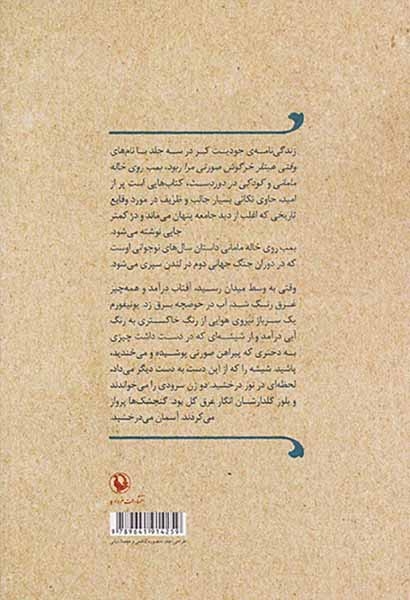 زندگی‌نامه‌ی جودیت کر در سه جلد با نام‌های
وقتی هیتلر خرگوش صورتی مرا ربود، بمب روی خاله
مامانی و کودکی در دوردست، کتاب‌هایی است پر از
امید، حاوی نکاتی بسیار جالب و ظریف در مورد وقایع
تاریخی که اغلب از دید جامعه پنهان می‌ماند و در کمتر
جایی نوشته می‌شود.
بمب روی خاله مامانی داستان سال‌های نوجوانی اوست
که در دوران جنگ جهانی دوم در لندن سپری می‌شود.
وقتی به وسط میدان رسید، آفتاب درآمد و همه‌چیز
غرق رنگ شد، آب در حوضچه برق زد. یونیفورم
یک سرباز نیروی هوایی از رنگ خاکستری به رنگ
آبی درآمد و از شیشه‌ای که در دست داشت چیزی
به دختری که پیراهن صورتی پوشیده و می‌خندید،
پاشید. شیشه را که از این دست به دست دیگر می‌داد،
لحظه‌ای در نور درخشید. دو زن سرودی را می‌خواندند
و بلوز گلدارشان انگار غرق گل بود. گنجشک‌ها پرواز
می‌کردند. آسمان می‌درخشید.
انتشارات مروارید
9789641914259